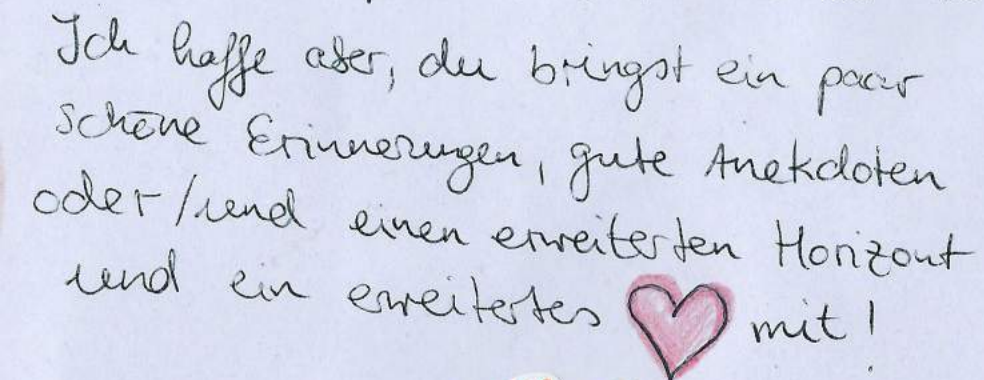 Ich hoffe aber, du bringst ein paar
schöne Erinnerungen, gute Anekdoten
oder/und einen erweiterten Horizont
und ein erweitertes ♥ mit!